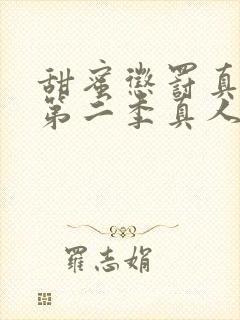 甜蜜懲罰真
第二季真人
羅志娟